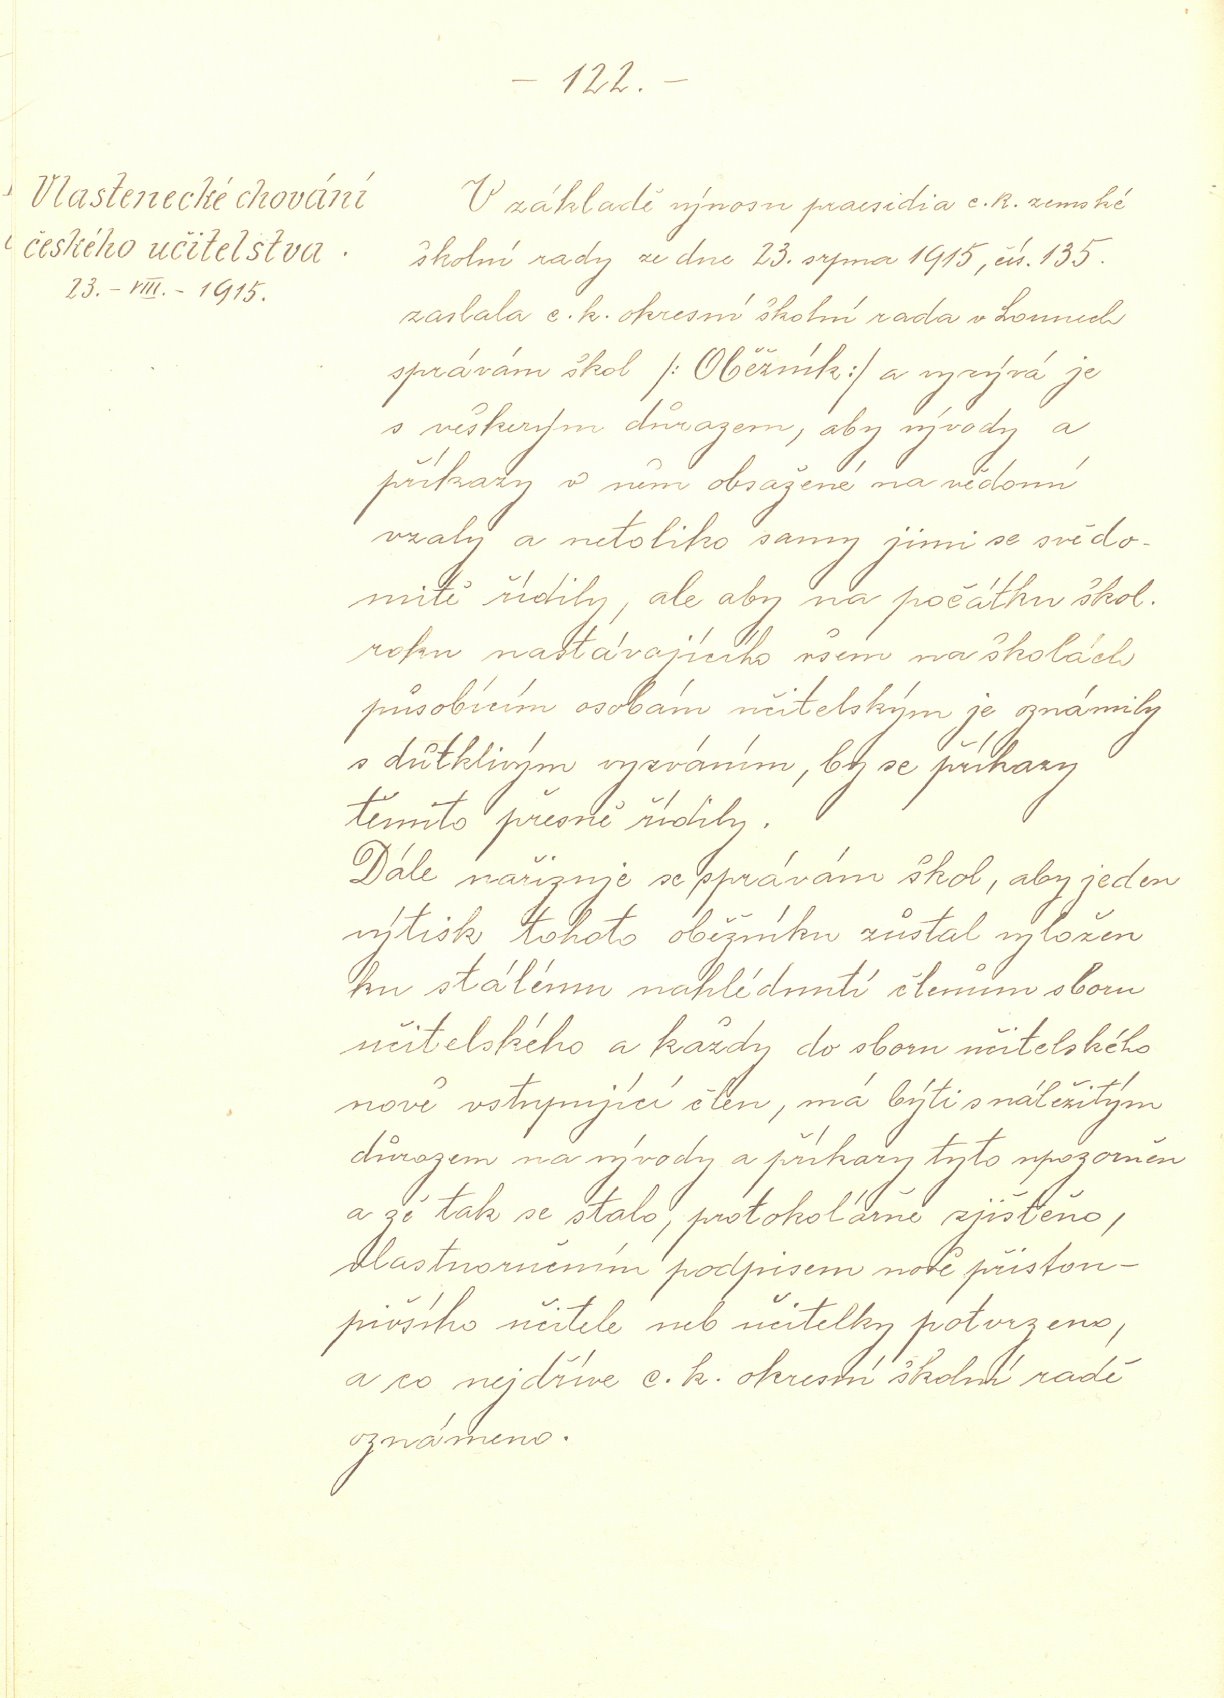 – 122. –
Vlastenecké chování
českého učitelstva.
23. – VIII. – 1915.
V základě výnosu praesidia c. k. zemské
školní rady ze dne 23. srpna 1915, čís. 135.
zaslala c. k. okresní školní rada v Lounech
správám škol /: Oběžník :/ a vyzývá je
s veškerým důrazem, aby vývody a
příkazy v něm obsažené na vědomí
vzaly a netoliko samy jimi se svědo-
mitě řídily, ale aby na počátku škol.
roku nastávajícího všem na školách
působícím osobám učitelským je oznámily
s důtklivým vyzváním, by se příkazy
těmito přesně řídily.
Dále nařizuje se správám škol, aby jeden
výtisk tohoto oběžníku zůstal vyložen
ku stálému nahlédnutí členům sboru
učitelského a každý do sboru učitelského
nově vstupující člen, má býti s náležitým
důrazem na vývody a příkazy tyto upozorněn
a že tak se stalo, protokolárně zjištěno,
vlastnoručním podpisem nově přistou-
pivšího učitele neb učitelky potvrzeno,
a co nejdříve c. k. okresní školní radě
oznámeno.